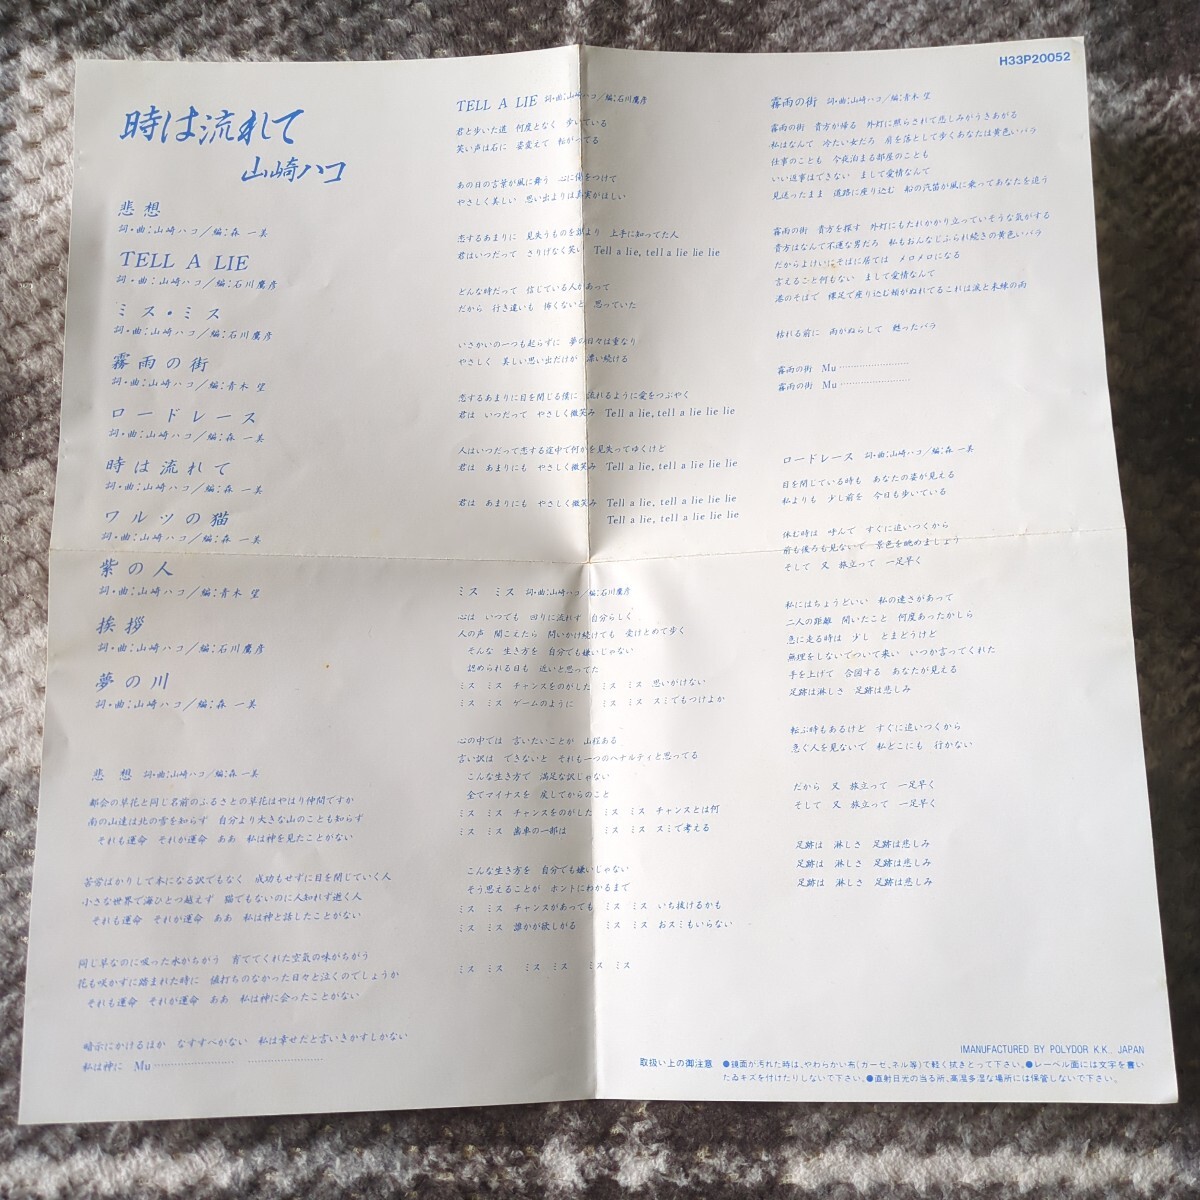 H33P20052
時は流れて
山崎ハコ
悲想
詞・曲;山崎ハコ/編;森 一美
TELL A LIE
詞・曲;山崎ハコ/編;石川鷹彦
ミス・ミス
詞・曲;山崎ハコ/編;石川鷹彦
霧雨の街
詞・曲;山崎ハコ/編;青木 望
ロードレース
詞・曲;山崎ハコ/編;森 一美
時は流れて
詞・曲;山崎ハコ/編;森 一美
ワルツの猫
詞・曲;山崎ハコ/編;森 一美
紫の人
詞・曲;山崎ハコ/編;青木 望
挨拶
詞・曲;山崎ハコ/編;石川鷹彦
夢の川
詞・曲;山崎ハコ/編;森 一美
悲想 詞・曲;山崎ハコ/編;森 一美
都会の草花と同じ名前のふるさとの草花はやはり仲間ですか
南の山達は北の雪を知らず 自分より大きな山のことも知らず
それも運命 それが運命 ああ 私は神を見たことがない
苦労ばかりして本になる訳でもなく 成功もせずに目を閉じていく人
小さな世界で海ひとつ越えず 猫でもないのに人知れず逝く人
それも運命 それが運命 ああ 私は神と話したことがない
同じ草なのに吸った水がちがう 育ててくれた空気の味がちがう
花も咲かずに踏まれた時に 値打ちのなかった日々と泣くのでしょうか
それも運命 それが運命 ああ 私は神に会ったことがない
暗示にかけるほか なすすべがない 私は幸せだと言いきかすしかない
私は神に Mu………………… …………………
TELL A LIE 詞・曲;山崎ハコ/編;石川鷹彦
君と歩いた道 何度となく 歩いている
笑い声は石に 姿変えて 転がってる
あの日の言葉が風に舞う 心に傷をつけて
やさしく美しい 思い出よりは真実がほしい
恋するあまりに 見失うものを誰より 上手に知ってた人
君はいつだって さりげなく笑い Tell a lie, tell a lie lie lie
どんな時だって 信じている人があって
だから 行き違いも 怖くないと 思っていた
いさかいの一つも起らずに 夢の日々は重なり
やさしく 美しい思い出だけが 漂い続ける
恋するあまりに目を閉じる僕に 流れるように愛をつぶやく
君は いつだって やさしく微笑み Tell a lie, tell a lie lie lie
人はいつだって恋する途中で何かを見失ってゆくけど
君は あまりにも やさしく微笑み Tell a lie, tell a lie lie lie
君は あまりにも やさしく微笑み Tell a lie, tell a lie lie lie
Tell a lie, tell a lie lie lie
ミス ミス 詞・曲;山崎ハコ/編;石川鷹彦
心は いつでも 回りに流れず 自分らしく
人の声 聞こえたら 問いかけ続けても 受けとめて歩く
そんな 生き方を 自分でも嫌いじゃない
認められる日も 近いと思ってた
ミス ミス チャンスをのがした ミス ミス 思いがけない
ミス ミス ゲームのように ミス ミス スミでもつけよか
心の中では 言いたいことが 山程ある
言い訳は できないと それも一つのペナルティと思ってる
こんな生き方で 満足な訳じゃない
全てマイナスを 戻してからのこと
ミス ミス チャンスをのがした ミス ミス チャンスとは何
ミス ミス 歯車の一部は ミス ミス スミで考える
こんな生き方を 自分でも嫌いじゃない
そう思えることが ホントにわかるまで
ミス ミス チャンスがあっても ミス ミス いち抜けるかも
ミス ミス 誰かが欲しがる ミス ミス おスミもいらない
ミス ミス ミス ミス ミス ミス
霧雨の街 詞・曲;山崎ハコ/編;青木 望
霧雨の街 貴方が帰る 外灯に照らされて悲しみがうきあがる
私はなんて 冷たい女だろ 肩を落として歩くあなたは黄色いバラ
仕事のことも 今夜泊まる部屋のことも
いい返事はできない まして愛情なんて
見送ったまま 道路に座り込む 船の汽笛が風に乗ってあなたを追う
霧雨の街 貴方を探す 外灯にもたれかかり立っていそうな気がする
貴方はなんて不運な男だろ 私もおんなじふられ続きの黄色いバラ
だからよけいにそばに居ては メロメロになる
言えること何もない まして愛情なんて
港のそばで 裸足で座り込む頬がぬれてるこれは涙と未練の雨
枯れる前に 雨がぬらして 甦ったバラ
霧雨の街 Mu…………………
霧雨の街 Mu…………………
ロードレース 詞・曲;山崎ハコ/編;森 一美
目を閉じている時も あなたの姿が見える
私よりも 少し前を 今日も歩いている
休む時は 呼んで すぐに追いつくから
前も後ろも見ないで 景色を眺めましょう
そして 又 旅立って 一足早く
私にはちょうどいい 私の速さがあって
二人の距離 開いたこと 何度あったかしら
急に走る時は 少し とまどうけど
無理をしないでついて来い いつか言ってくれた
手を上げて 合図する あなたが見える
足跡は淋しさ 足跡は悲しみ
転ぶ時もあるけど すぐに追いつくから
急ぐ人を見ないで 私どこにも 行かない
だから 又 旅立って 一足早く
そして 又 旅立って 一足早く
足跡は 淋しさ 足跡は悲しみ
足跡は 淋しさ 足跡は悲しみ
足跡は 淋しさ 足跡は悲しみ
IMANUFACTURED BY POLYDOR K.K., JAPAN
取扱い上の御注意 ●鏡面が汚れた時は、やわらかい布(ガーゼ、ネル等)で軽く拭きとって下さい。●レーベル面には文字を書い
たゐキズを付けたりしないで下さい。●直射日光の当る所、高温多湿な場所には保管しないで下さい。